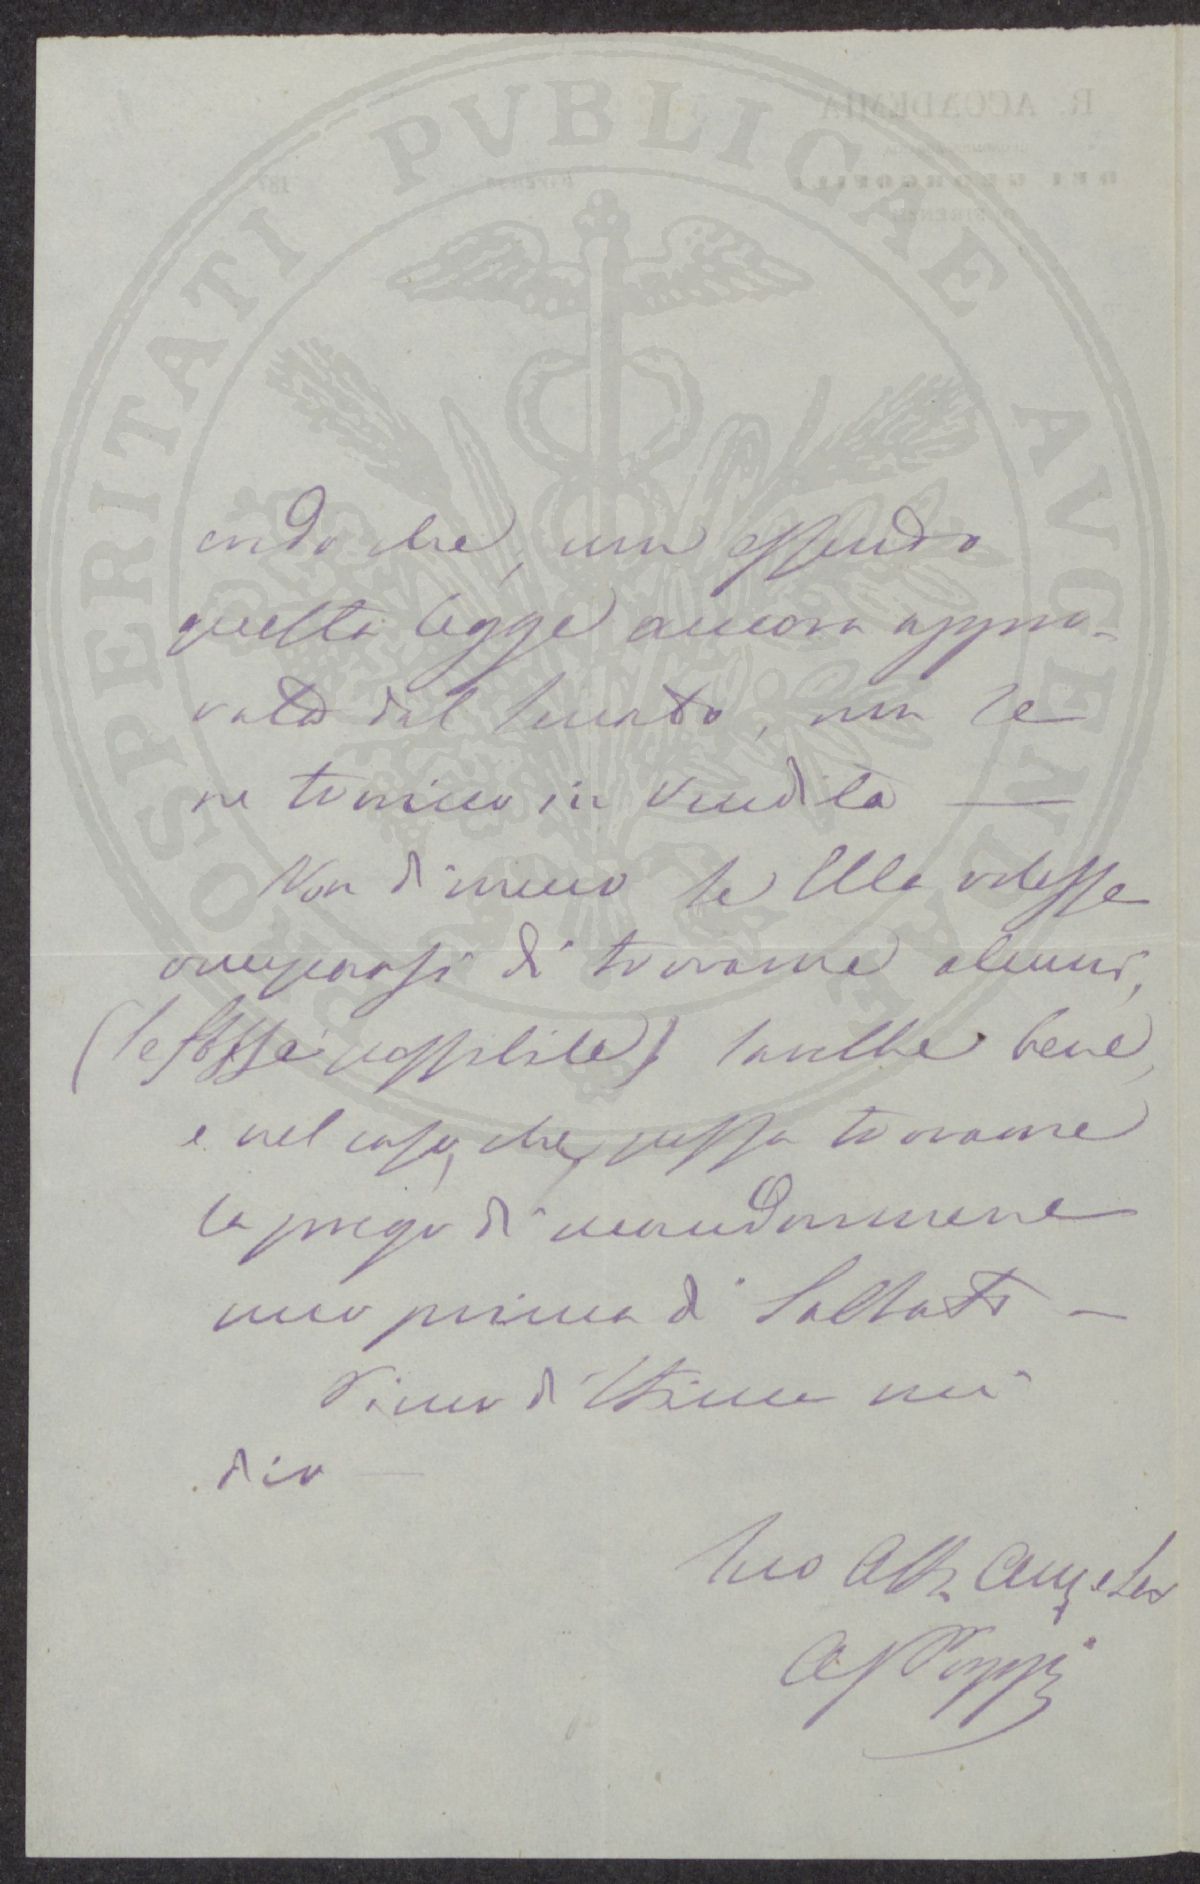 PROSPERITATI PVBLICAE AVGENDAE
R. ACCADEMIA
DEI GEORGOFILI
DI FIRENZE
Firenze 187
endo che, non essendo
questa legge ancora appro-
vata dal Senato, non se
ne trovino in vendita —
Non di meno se Ella volesse
occuparsi di trovarne alcuni,
(se fosse possibile) sarebbe bene,
e nel caso, che possa trovarne
la prego di mandarmene
uno prima di Sabato —
Sino di
dio —
Suo Aff.